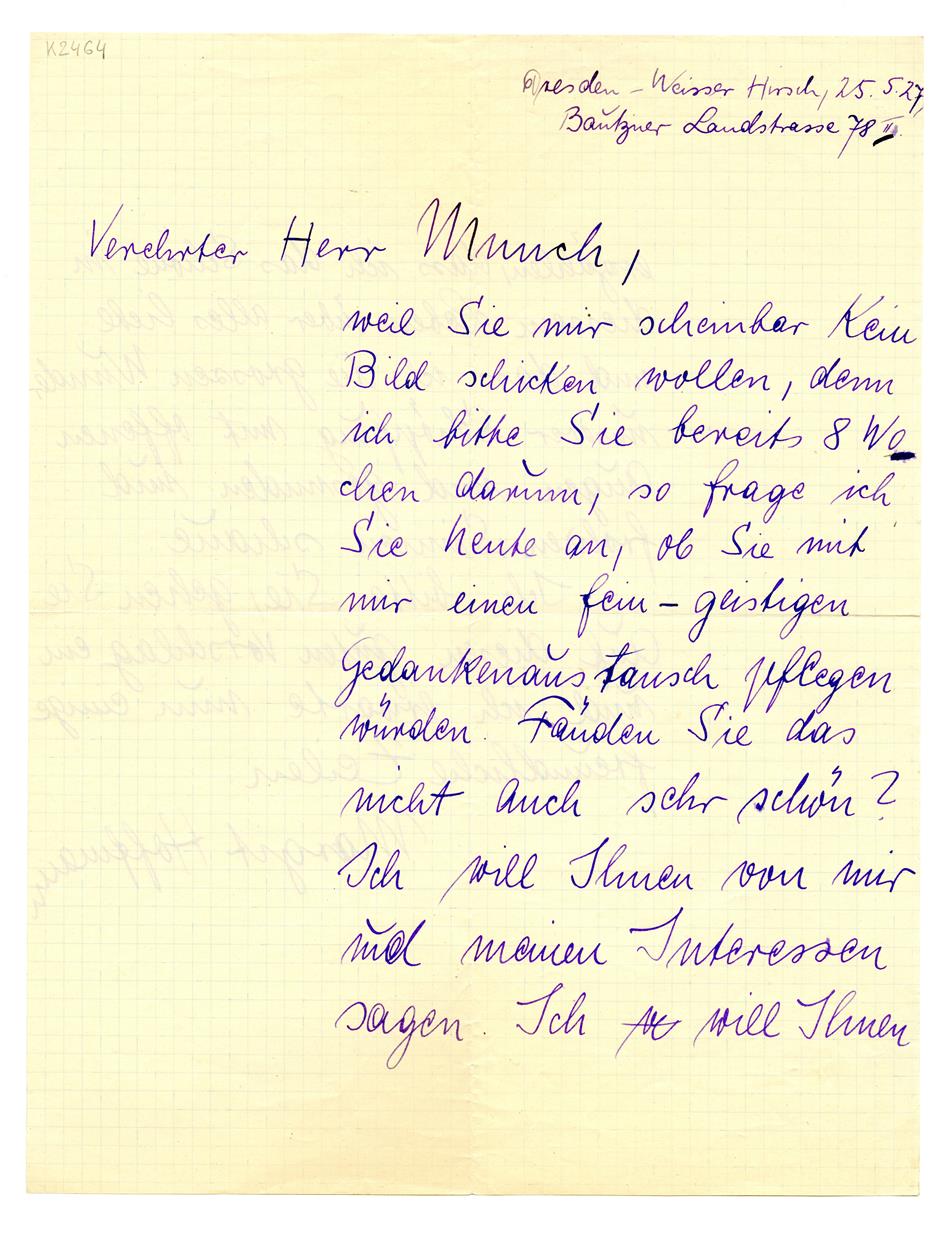 K2464
Dresden - Weisser Hirsch, 25. 5. 27,
Bautzner Landstrasse 78 II.
Verehrter Herr Munch,
weil Sie mir scheinbar kein
Bild schicken wollen, denn
ich bitte Sie bereits 8 Wo
chen darum, so frage ich
Sie heute an, ob Sie mit
mir einen fein - geistigen
Gedankenaustausch pflegen
würden. Fänden Sie das
nicht auch sehr schön?
Ich will Ihnen von mir
und meinen Interessen
sagen. Ich will Ihnen